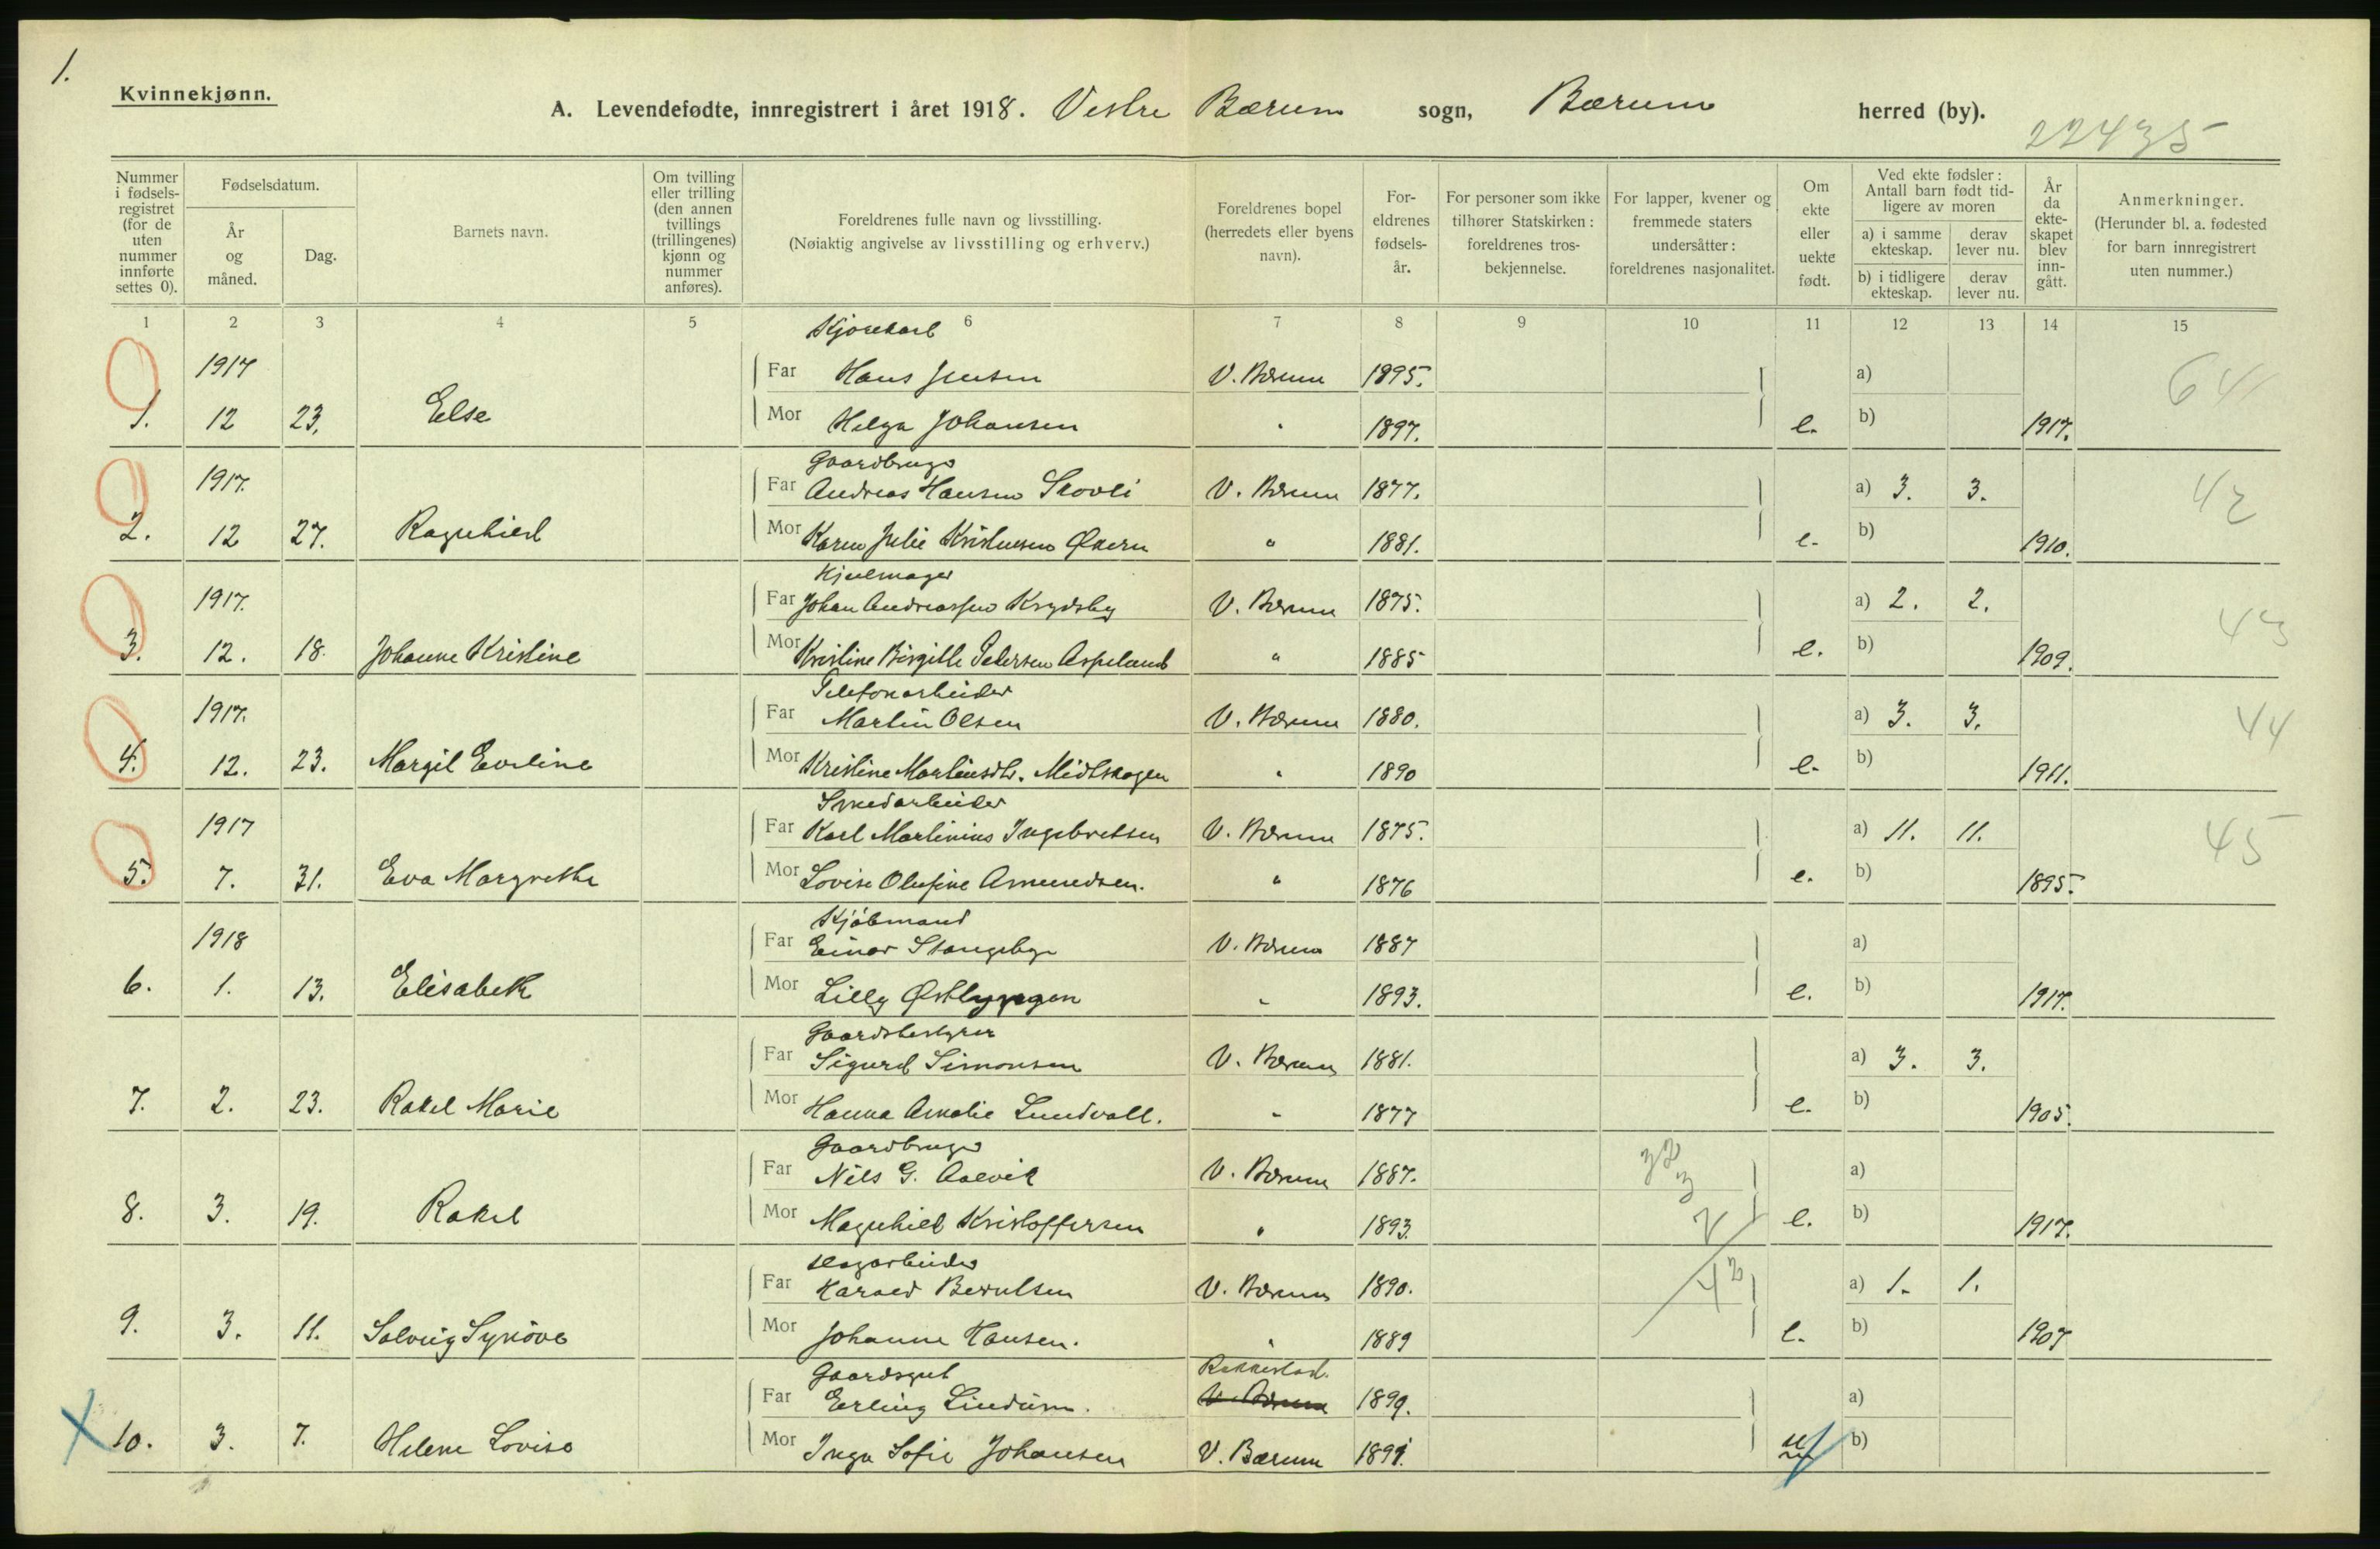 1.
Kvinnekjønn.
A. Levendefødte, innregistrert i året 1918. Vestre Bærum sogn, Bærum herred (by).
22435
Nummer i fødselsregistret (for de uten nummer innførte settes 0).
Fødselsdatum.
År og måned.
Dag.
Barnets navn.
Om tvilling eller trilling (den annen tvillings (trillingenes) kjønn og nummer anføres).
Foreldrenes fulle navn og livsstilling.
(Nøiaktig angivelse av livsstilling og erhverv.)
Foreldrenes bopel (herredets eller byens navn).
Foreldrenes fødselsår.
For personer som ikke tilhører Statskirken: foreldrenes trosbekjennelse.
For lapper, kvener og fremmede staters undersåtter: foreldrenes nasjonalitet.
Om ekte eller uekte født.
Ved ekte fødsler: Antall barn født tidligere av moren
a) i samme ekteskap. derav lever nu.
b) i tidligere ekteskap. derav lever nu.
År da ekteskapet blev inngått.
Anmerkninger.
(Herunder bl. a. fødested for barn innregistrert uten nummer.)
1 2 3 4 5 6 7 8 9 10 11 12 13 14 15
Kjørekarl
1917 Far Hans Jensen V. Bærum 1895. a) 64
1. 12 23. Else Mor Helga Johansen " 1897. e. b) 1917.
Gaardbruger
1917. Far Andreas Hansen Skovli V. Bærum 1877. a) 3. 3. 42
2. 12 27. Ragnhild Mor Karen Julie Kristensen Økern " 1881. e. b) 1910.
Hjulmager
1917. Far Johan Andreassen Krydsby V. Bærum 1875. a) 2. 2. 43
3. 12. 18. Johanne Kristine Mor Kristine Birgitte Pedersen Aspeland " 1885 e. b) 1909.
Telefonarbeider
1917. Far Martin Olsen V. Bærum 1880. a) 3. 3. 44
4. 12. 23. Margit Eveline Mor Kristine Martinsdtr. Midtskogen " 1890 e. b) 1911.
Smedarbeider
1917 Far Karl Martinius Ingebretsen V. Bærum 1875. a) 11. 11. 45
5. 7. 31. Eva Margrethe Mor Lovise Olufine Amundsen. " 1876 e. b) 1895.
Kjøbmand
1918 Far Einar Stangebye V. Bærum 1887 a)
6. 1. 13. Elisabeth Mor Lilly " 1893. e. b) 1917.
Gaardsbestyrer
Far Sigurd Simonsen V. Bærum 1881. a) 3. 3.
7. 2. 23. Rakel Marie Mor Hanna Amalie Lundvall. " 1877 e. b) 1905.
Gaardbruger
Far Nils G. Aalvik V. Bærum 1887. a)
8. 3. 19. Rakel Mor Magnhild Kristoffersen " 1893. e. b) 1917.
Far Harald Berntsen V. Bærum 1890. a) 1. 1.
9. 3. 11. Solveig Synøve Mor Johanne Hansen. " 1889 e. b) 1907
Gaardsgut Rakkestad.
Far Erling Lindum. V. Bærum 1899. a)
10. 3. 7. Helene Lovise Mor Inga Sofie Johansen V. Bærum 1891. b)